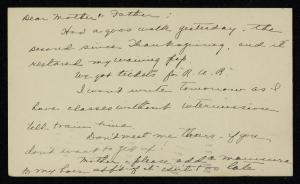 Dear Mother & Father:
Had a good walk yesterday, the
second since Thanksgiving, and it
restored my waning pep.
We got tickets for "R.U.R."
I won't write tomorrow as I
have classes without intermission
till train time.
Don't meet me Thurs. if you
don't want to get up!
Mother, please add a manicure
to my hair appt if it isn't too late